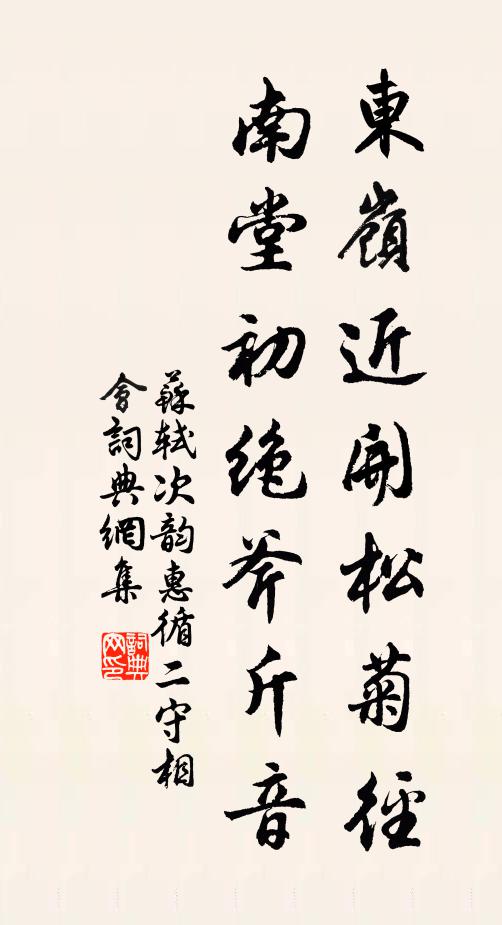 東嶺近開松菊徑
南堂初絶斧斤音
蘇軾次韵惠循二守相
會詞典網集
詞典网印